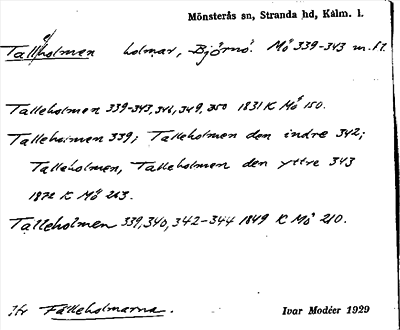 Mönsterås sn, Stranda hd, Kalm. l.
Talleholmen holmar, Björnö. Mö 339-343 m.fl.
Talleholmen 339-343, 346, 349, 350 1831 K Mö 150.
Talleholmen 339; Talleholmen den indre 342;
Talleholmen, Talleholmen den yttre 343
1872 K Mö 263.
Talleholmen 339, 340, 342-344 1849 K Mö 210.
Jfr Fälleholmarna. Ivar Modéer 1929